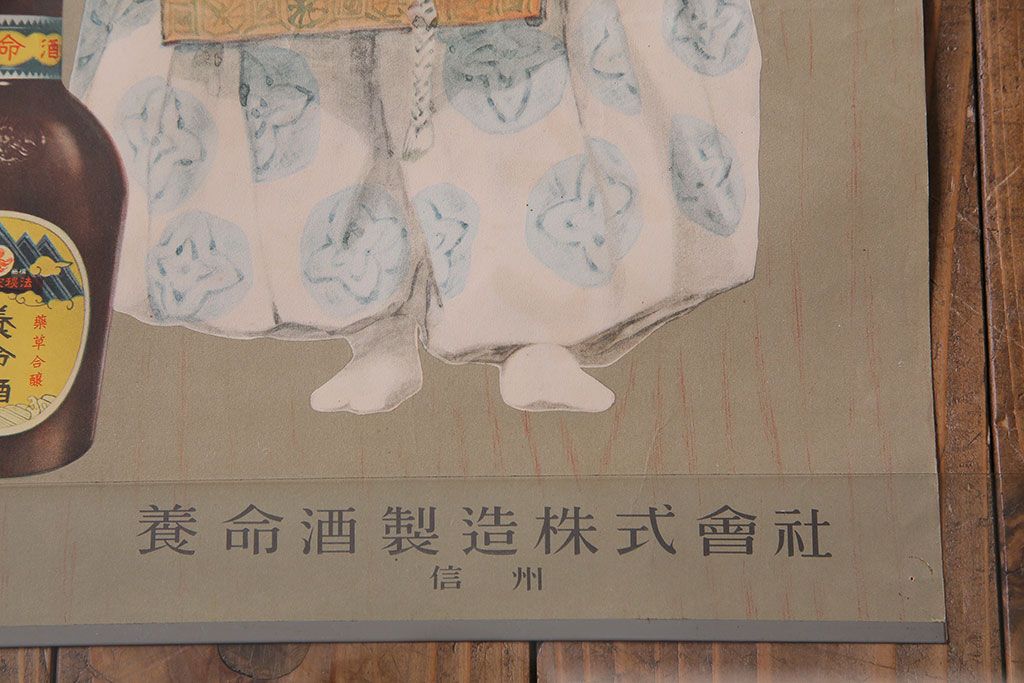 命酒
法
藥草合釀
養命酒
養命酒製造株式會社
信州